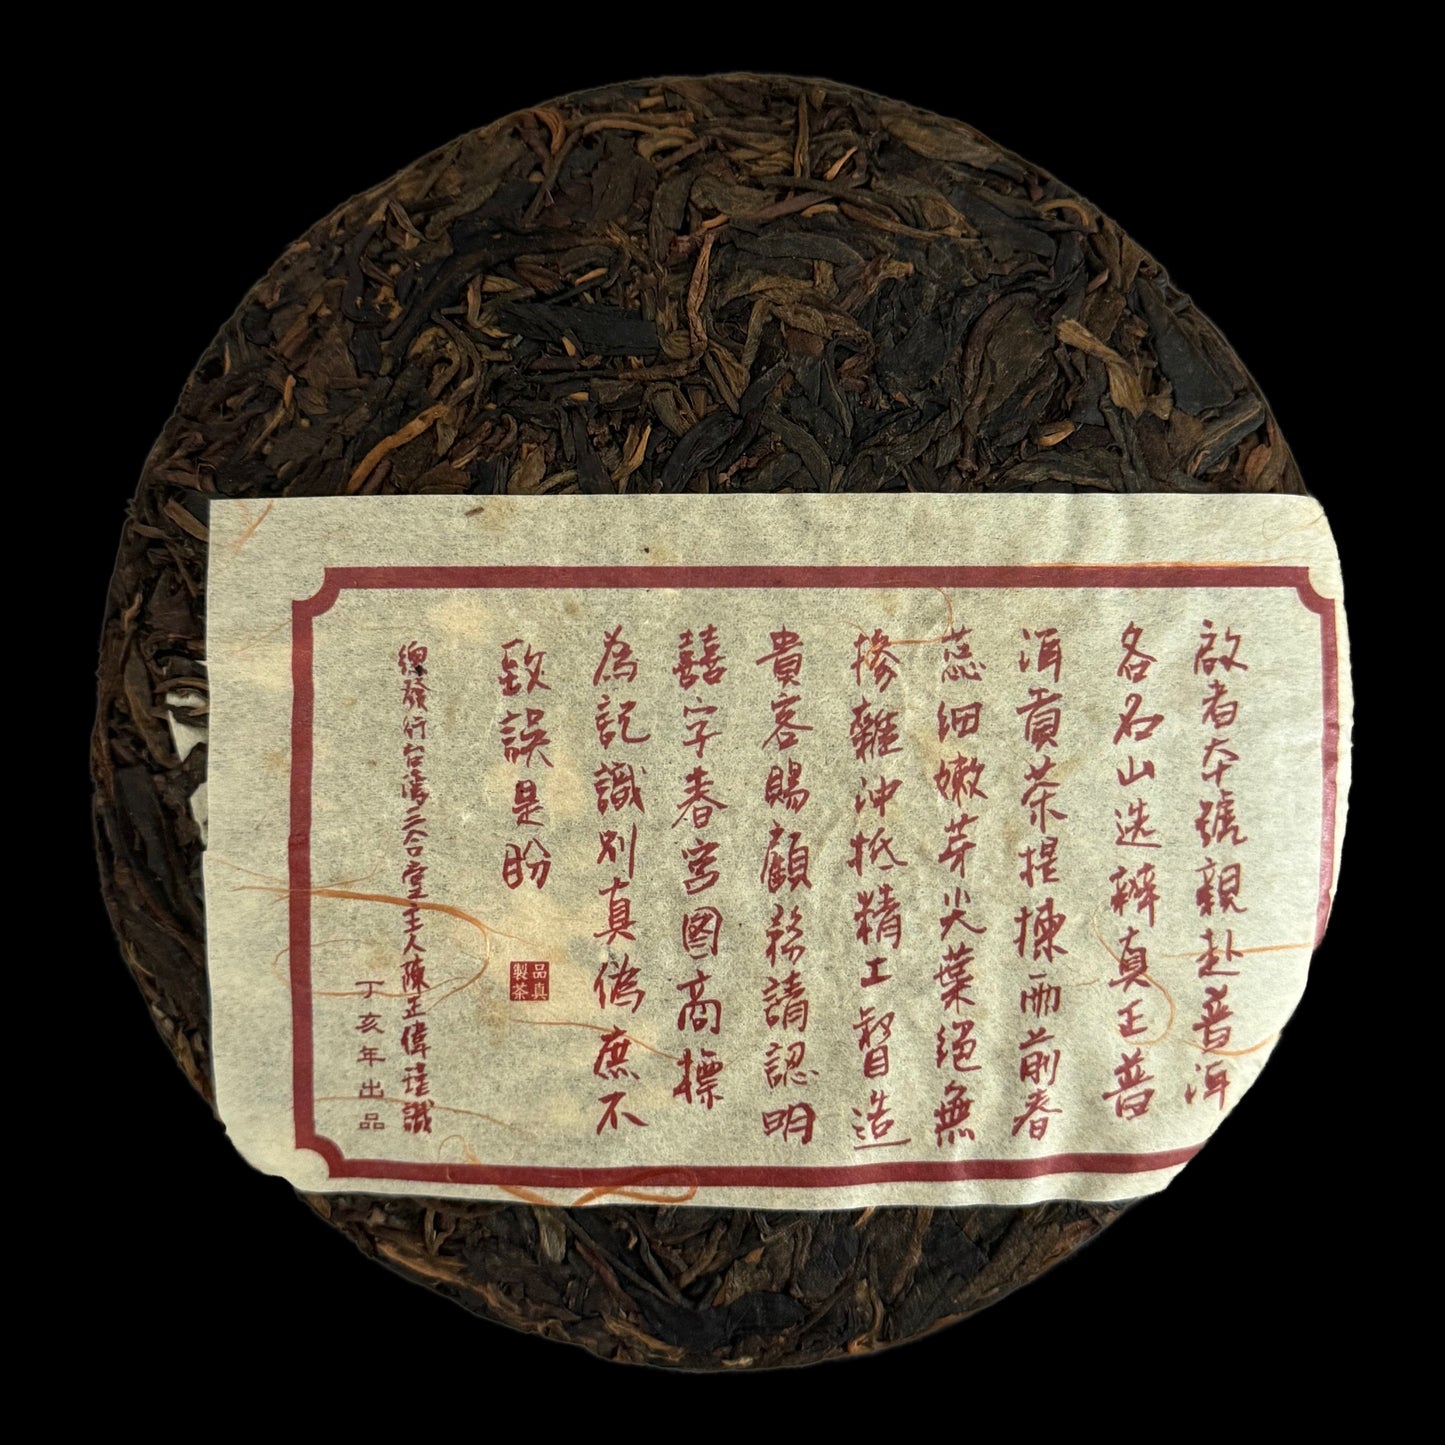 啟者本號親赴普洱
各名山选辨真正普
洱貢茶提揀雨前春
蕊细嫩芽尖葉絕無
摻雜沖抵精工督造
貴客賜顧務請認明
囍字春宮圖商標
為記識别真偽庶不
致誤是盼
品真製茶
總發行台灣三合堂主人陳正偉瑾識
丁亥年出品